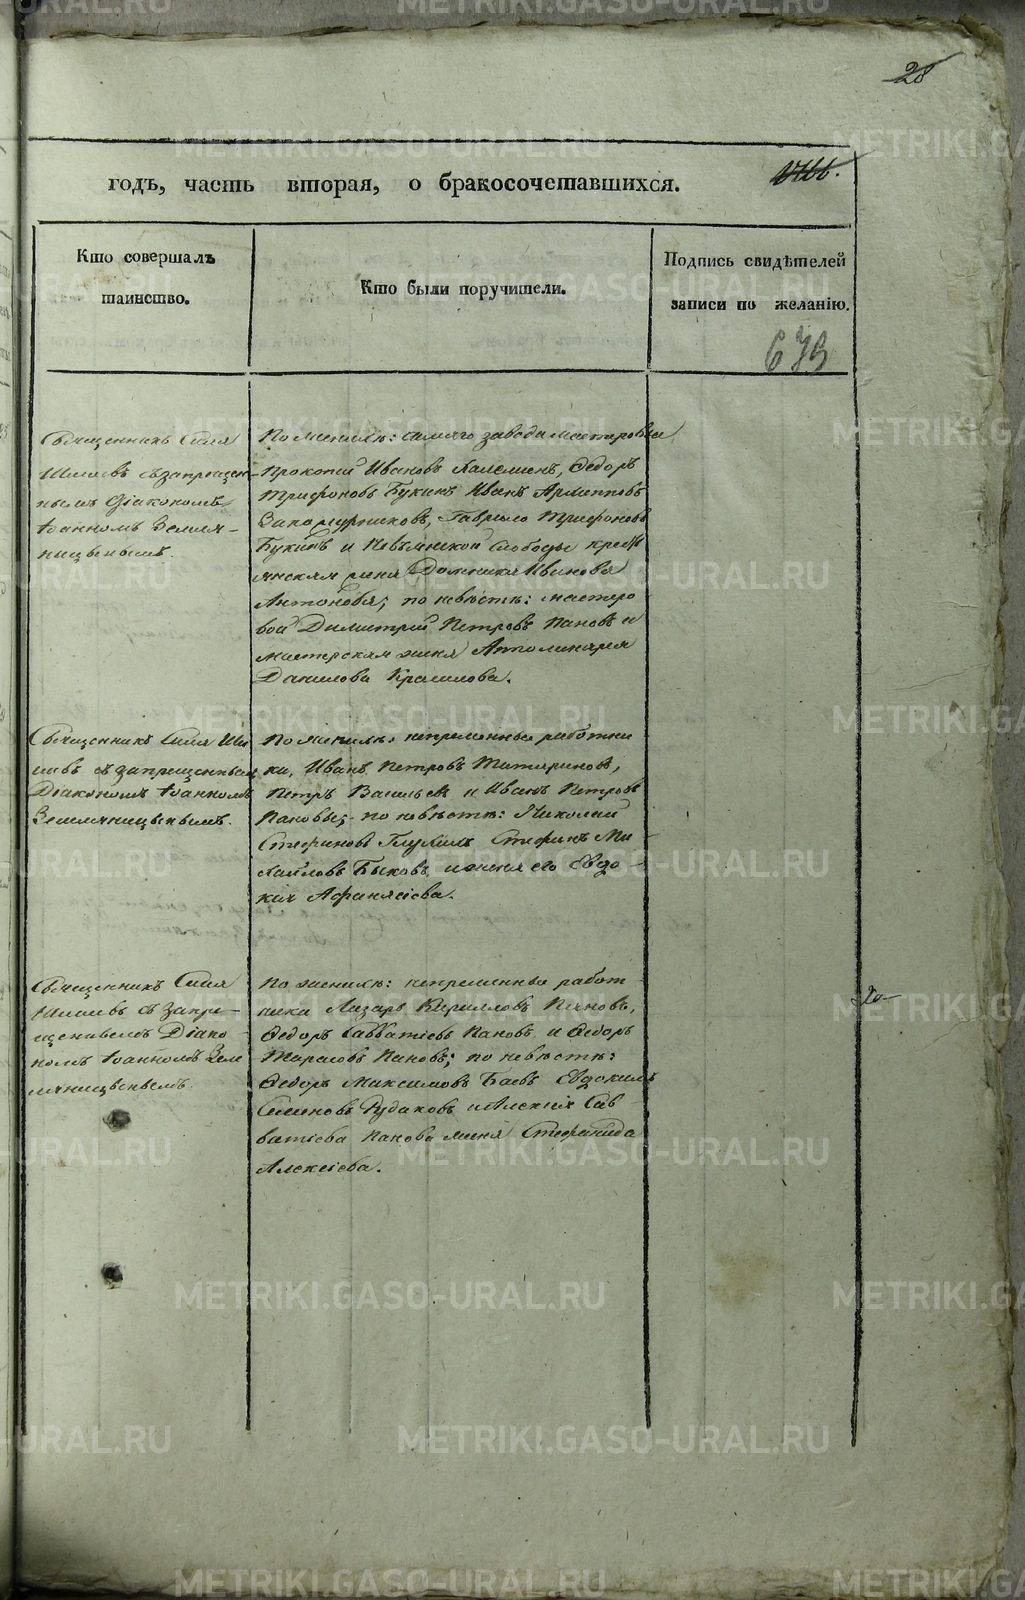 28
годъ, часть вторая, о бракосочетавшихся.
Кто совершалъ
таинство.
Кто были поручители.
Подпись свидѣтелей
записи по желанію.
679
Священникъ Силя
съ запрещен-
нымъ Діакономъ
Іоанномъ Земля-
ницынымъ.
По женихѣ: завода мастеровые
Прокопій Ивановъ Ѳедоръ
Трифоновъ Букинъ Иванъ
Гаврило Трифоновъ
Букинъ и Невьянской слободы кресть
янская жена Домника Иванова
Антонова; по невѣстѣ: мастеро
вой Димитрій Петровъ Пановъ и
мастерская жена Апполинарія
Данилова Красилова.
Священникъ Силя
съ запрещеннымъ
Діакономъ Іоанномъ
Земляницынымъ.
По женихѣ: непременные работни
ки, Иванъ Петровъ Татариновъ,
Петръ Васильевъ и Иванъ Петровъ
Пановы; по невѣстѣ: Николай
Стефановъ Стефанъ Ми
хайловъ Быковъ и жена его Евдо-
кія Афанасіева.
Священникъ Силя
съ запре-
щеннымъ Діако-
номъ Іоанномъ Зем
ляницынымъ.
По женихѣ: непременные работ-
ники Лазарь Кирилловъ Пановъ,
Ѳедоръ Савватіевъ Пановъ и Ѳедоръ
Тарасовъ Пановъ; по невѣстѣ:
Ѳедоръ Максимовъ Баевъ Евдокимъ
Семеновъ Рудаковъ и Алексія Сав-
ватіева Панова жена Стефанида
Алексіева.
METRIKI.GASO-URAL.RU